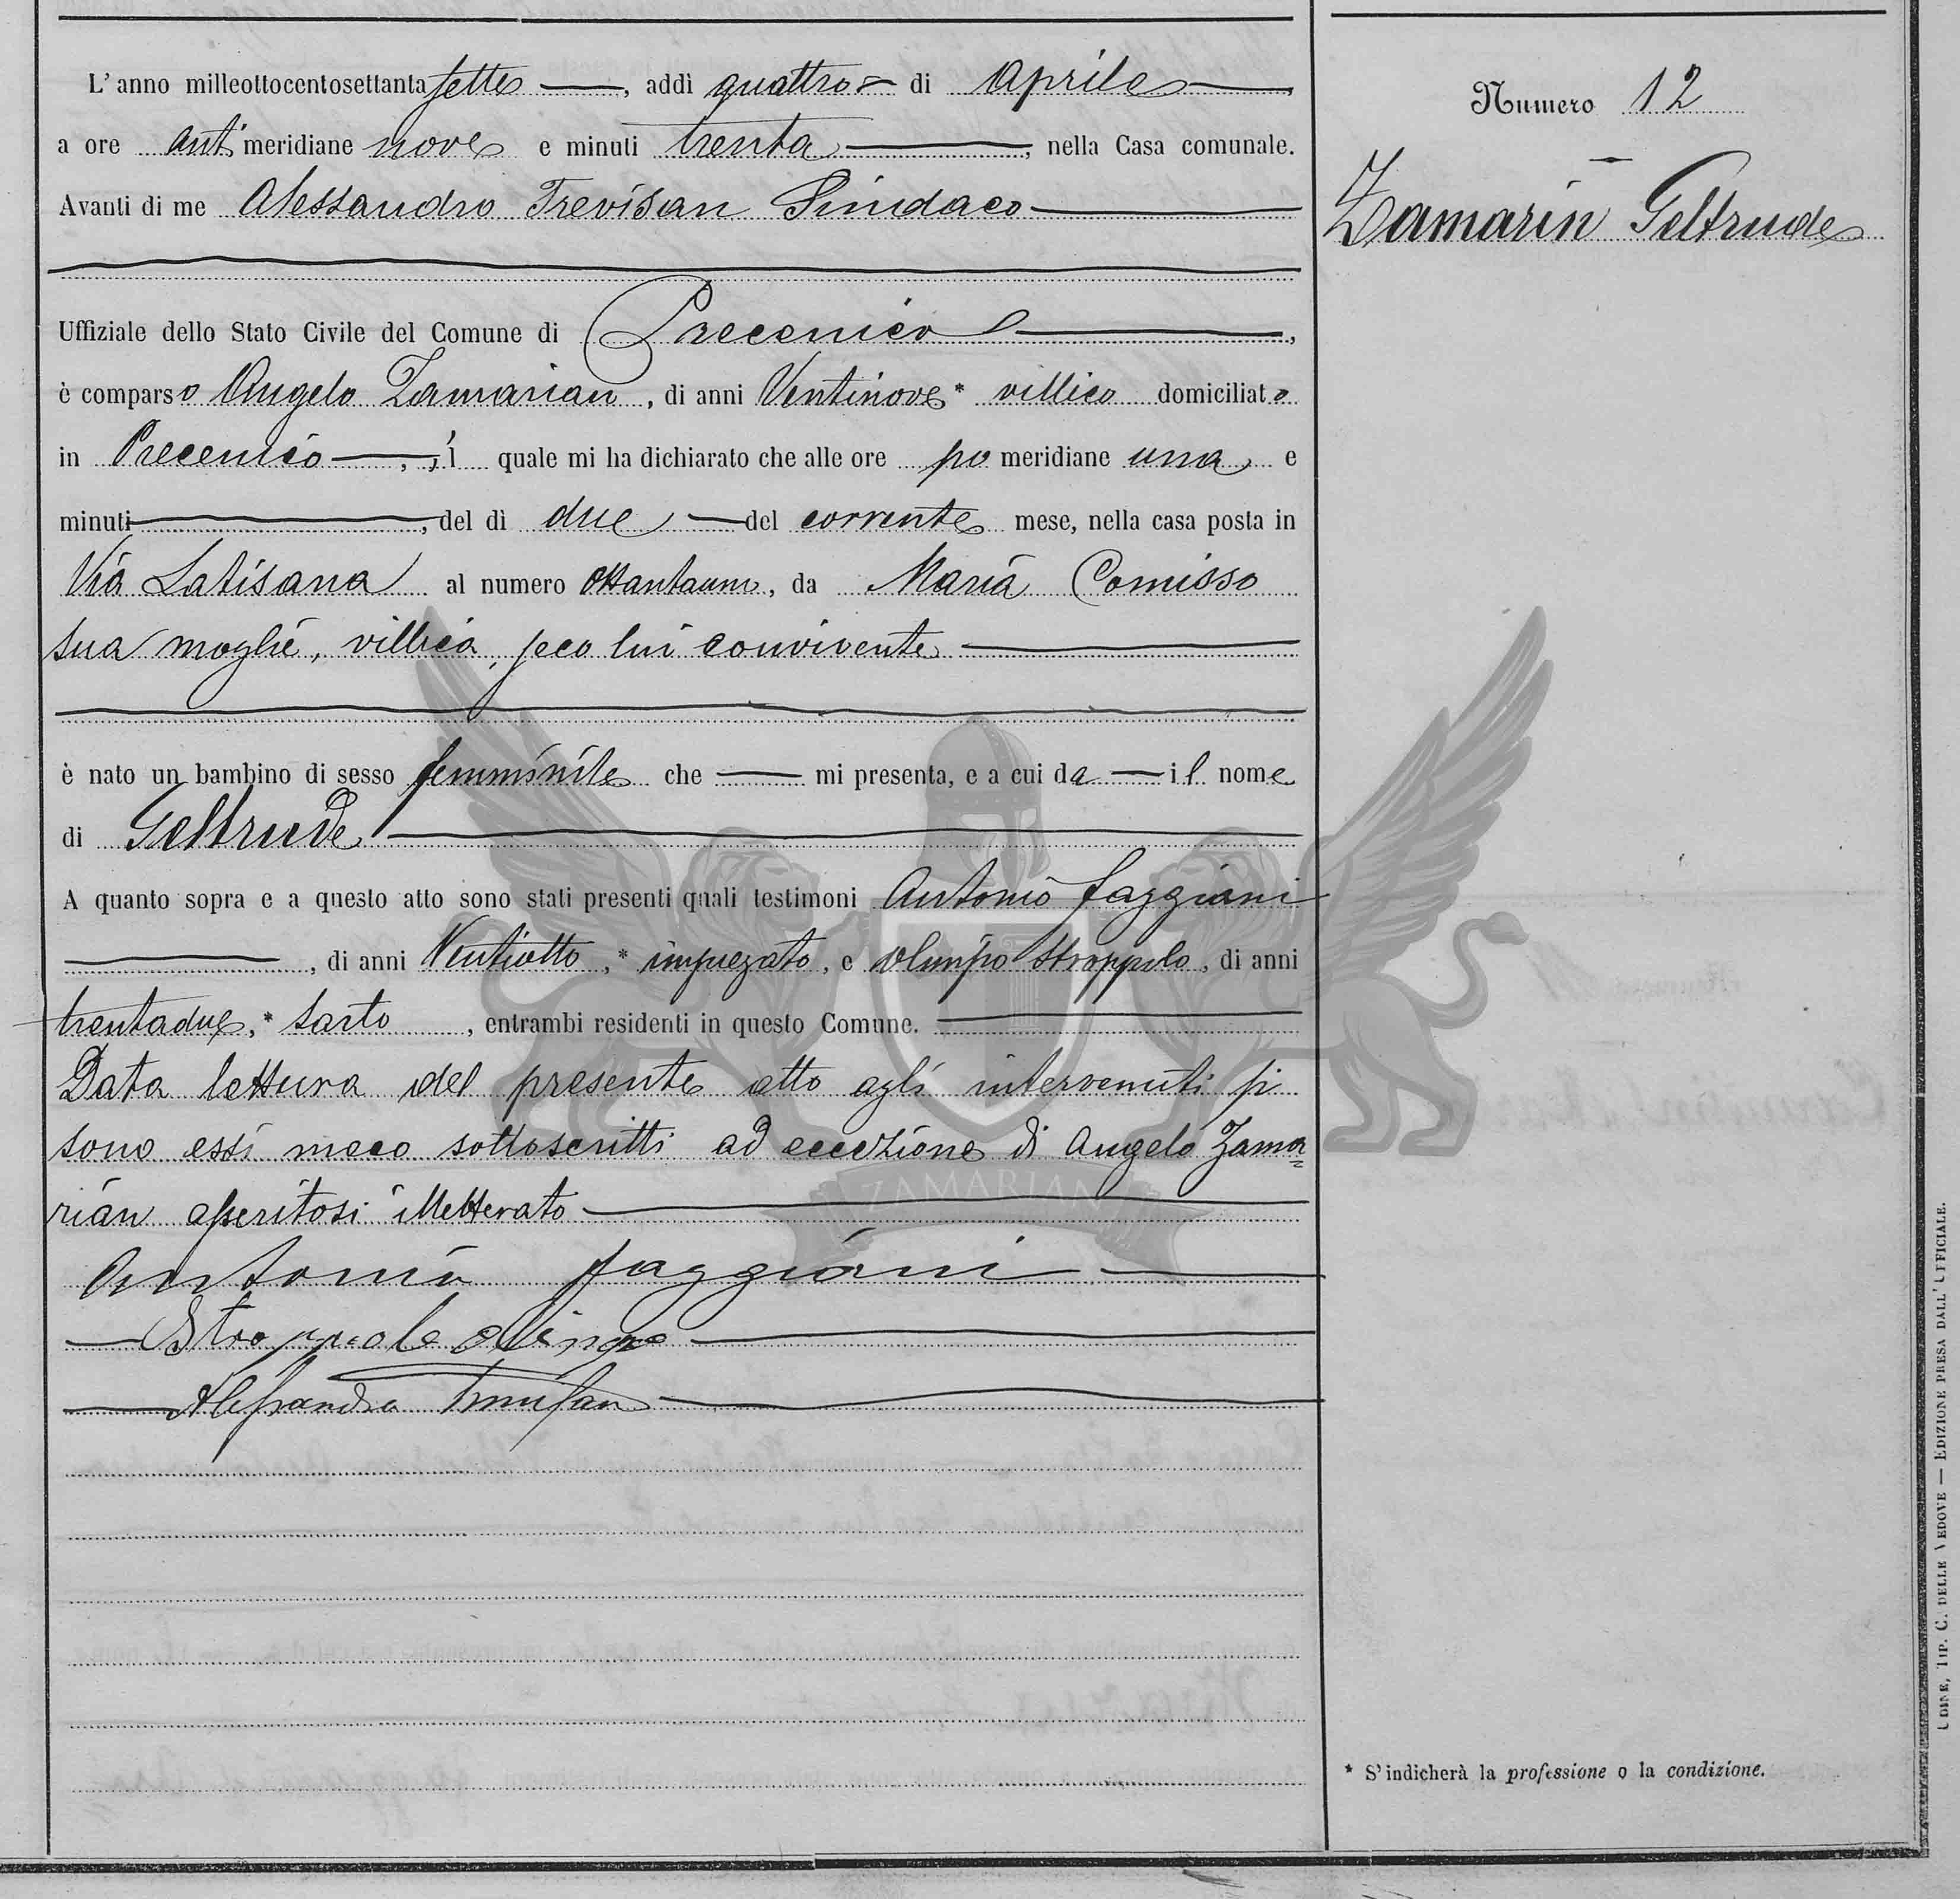 L'anno milleottocentosettanta sette, addì quattro di Aprile,
a ore anti meridiane nove e minuti trenta, nella Casa comunale.
Avanti di me Alessandro Trevisan Sindaco
Uffiziale dello Stato Civile del Comune di Precenico,
è comparso Angelo Zamarian, di anni Ventinove * villico domiciliato
in Precenico, il quale mi ha dichiarato che alle ore po meridiane una e
minuti, del dì due del corrente mese, nella casa posta in
Via Latisana al numero Ottantauno, da Maria Comisso
sua moglie, villica, seco lui convivente
è nato un bambino di sesso femminile che mi presenta, e a cui da il nome
di Geltrude
A quanto sopra e a questo atto sono stati presenti quali testimoni Antonio Faggiani
, di anni Ventiotto, * impiegato, e Olimpio Stroppolo, di anni
trentadue, * Sarto, entrambi residenti in questo Comune.
Data lettura del presente atto agli intervenuti si
sono essi meco sottoscritti ad eccezione di Angelo Zama=
rian asseritosi illetterato
Antonio Faggiani
Stroppolo
Alessandro Trevisan
Numero 12
Zamarin Geltrude
ZAMARIAN
* S'indicherà la professione o la condizione.
UDINE, TIP. C. DELLE VEDOVE — EDIZIONE PRESA DALL' UFFICIALE.